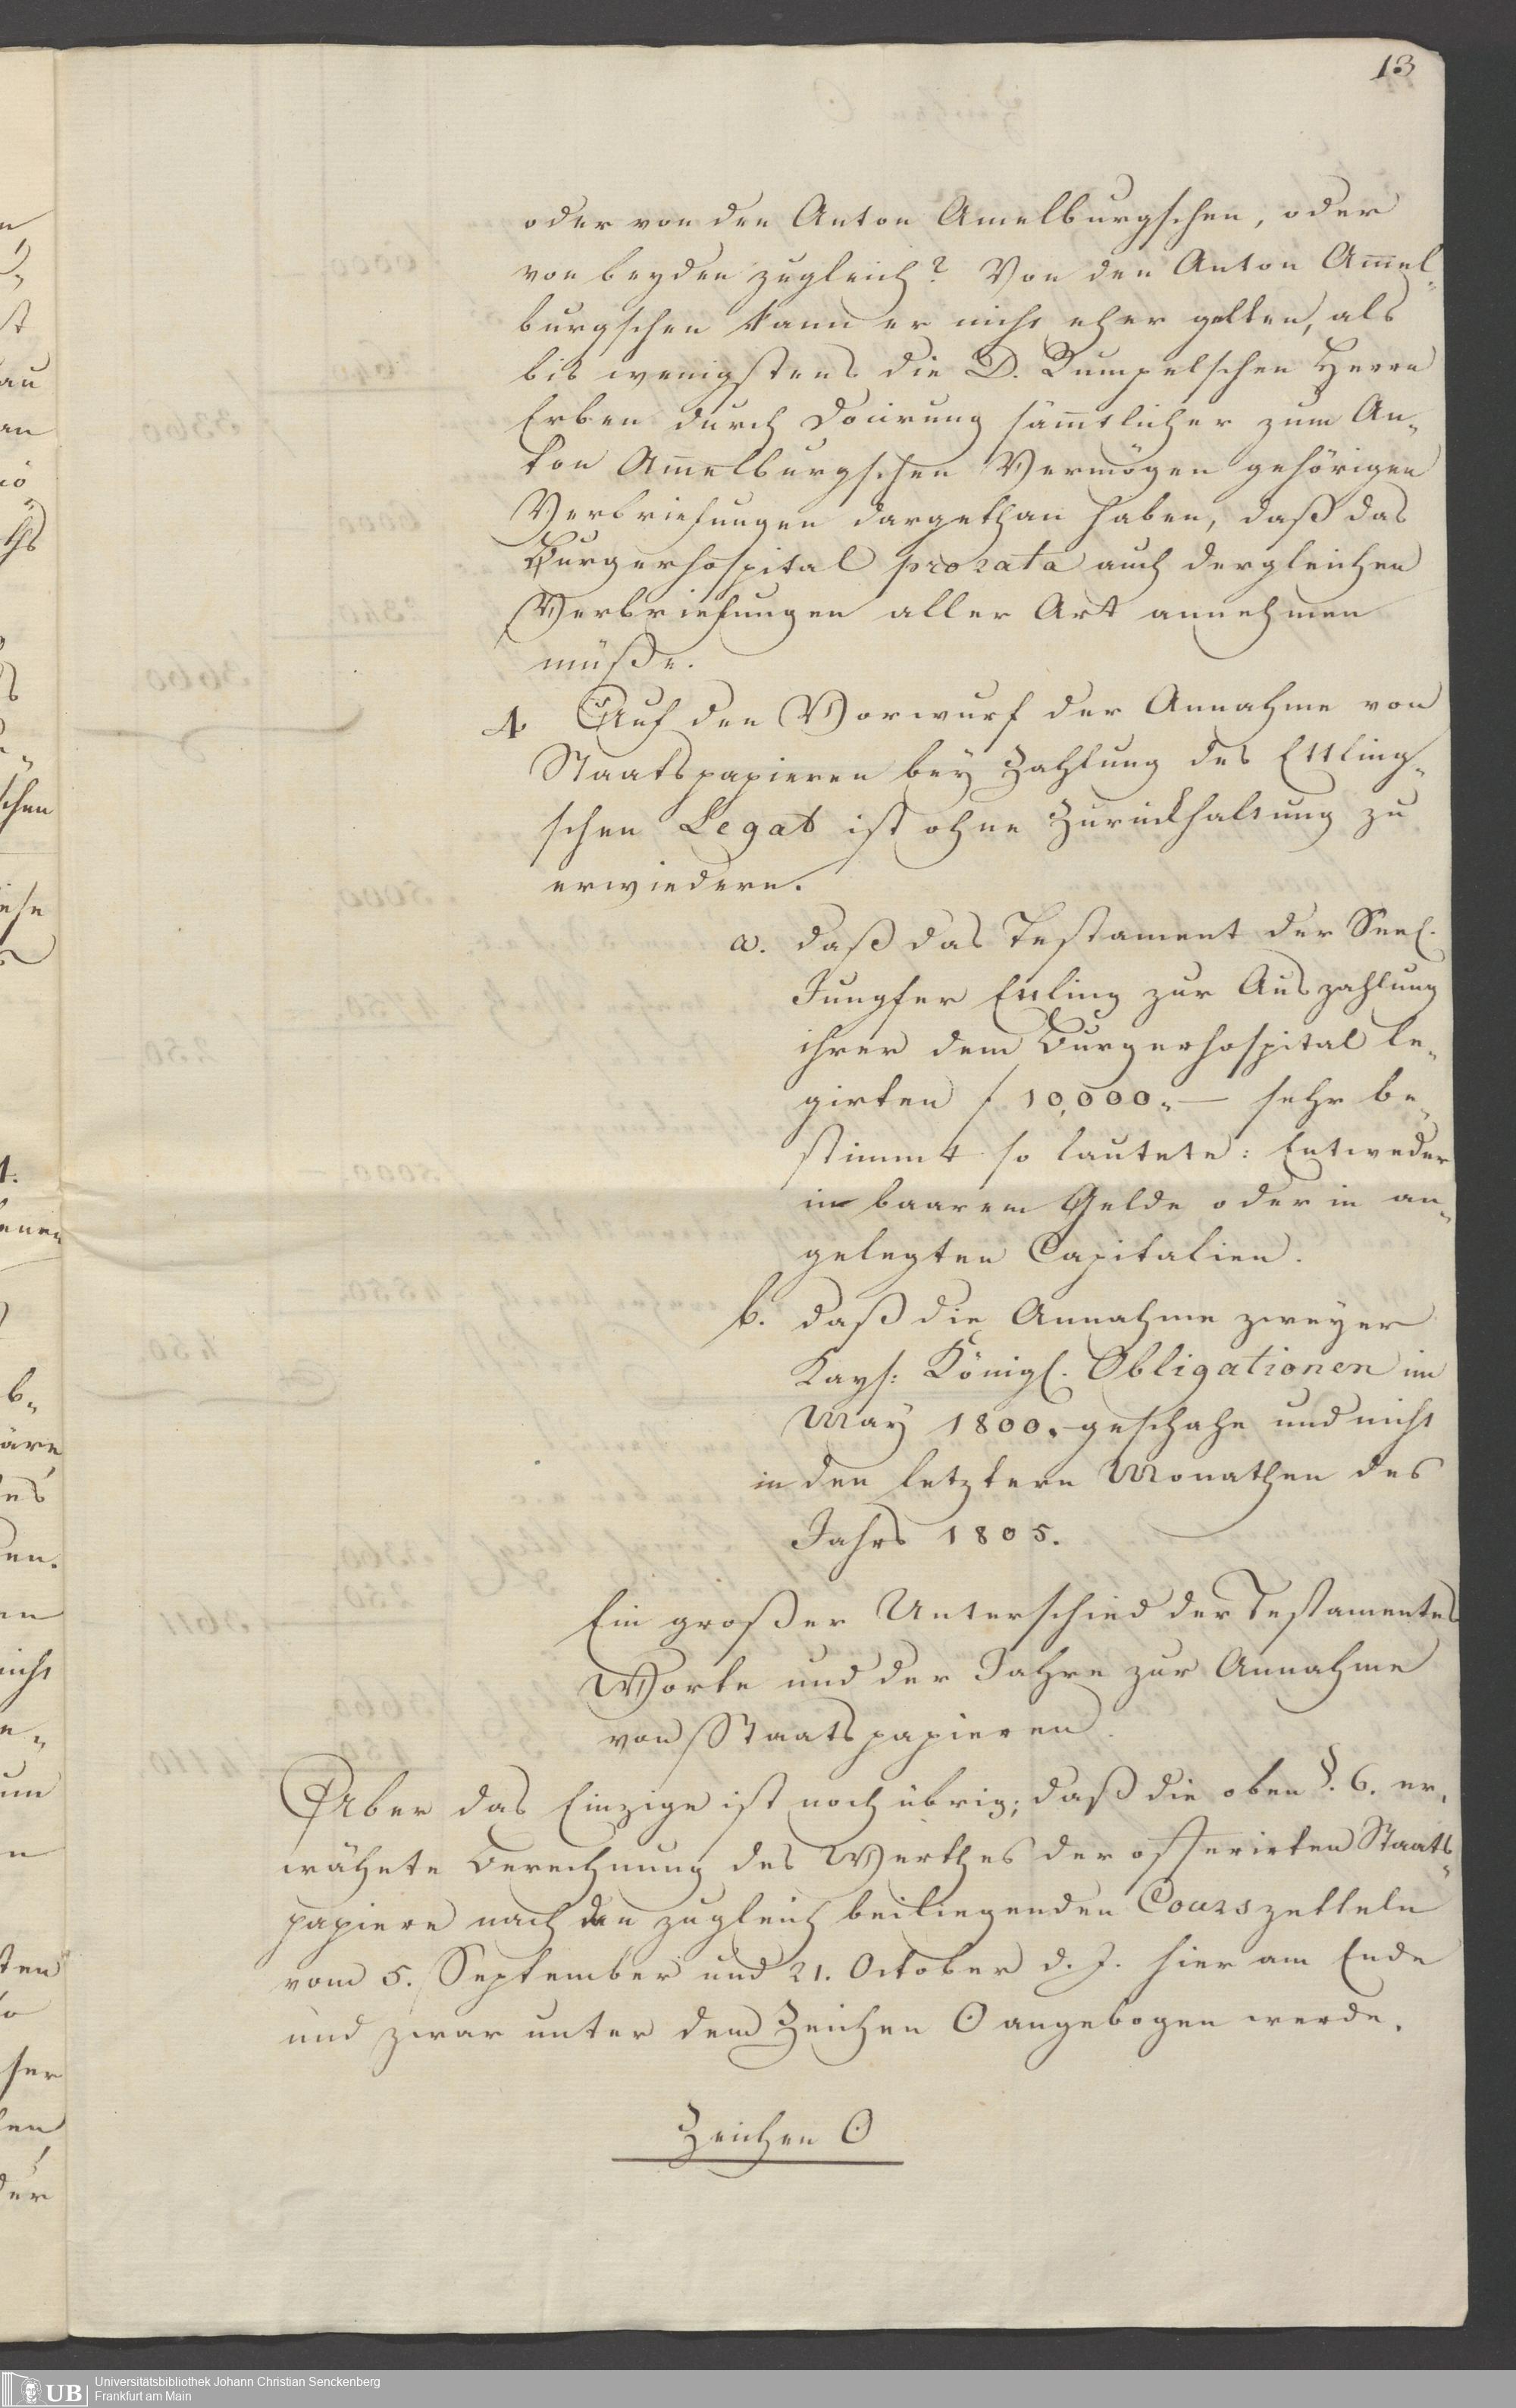 13
oder von den Anton Amelburgschen, oder
von beyden zugleich? Von den Anton Am̄el„
burgschen kann er nicht eher gelten, als
bis wenigstens die D. Rumpelschen Herrn
Erben durch Docirung säm̄tlicher zum An„
ton Am̄elburgschen Vermögen gehörigen
Verbriefungen dargethan haben, daß das
Burgerhospital prorata auch dergleichen
Verbriefungen aller Art annehmen
müße.
4 Auf den Vorwurf der Annahme von
Staatspapieren bey Zahlung des Ettling„
schen Legat ist ohne Zurückhaltung zu
erwiedern.
a. daß das Testament der Seel.
Jungfer Ettling zur Auszahlung
ihrer dem Burgerhospital le„
girten f 10,000„— sehr be„
stimmt so lautete: Entweder
in baarem Gelde oder in an„
gelegten Capitalien.
b. daß die Annahme zweyer
Kays: Königl. Obligationen im
May 1800. geschahe und nicht
in den letztern Monathen des
Jahrs 1805.
Ein großer Unterschied der Testamentes
Worte und der Jahre zur Annahme
von Staatspapieren.
Aber das Einzige ist noch übrig; daß die oben §. 6. er„
wähnte Berechnung des Werthes der offerirten Staats„
papiere nach den zugleich beiliegenden Courszetteln
vom 5. September und 21. October d. J. hier am Ende
und zwar unter dem Zeichen ʘ angebogen werde.
Zeichen ʘ
UB
Universitätsbibliothek Johann Christian Senckenberg
Frankfurt am Main